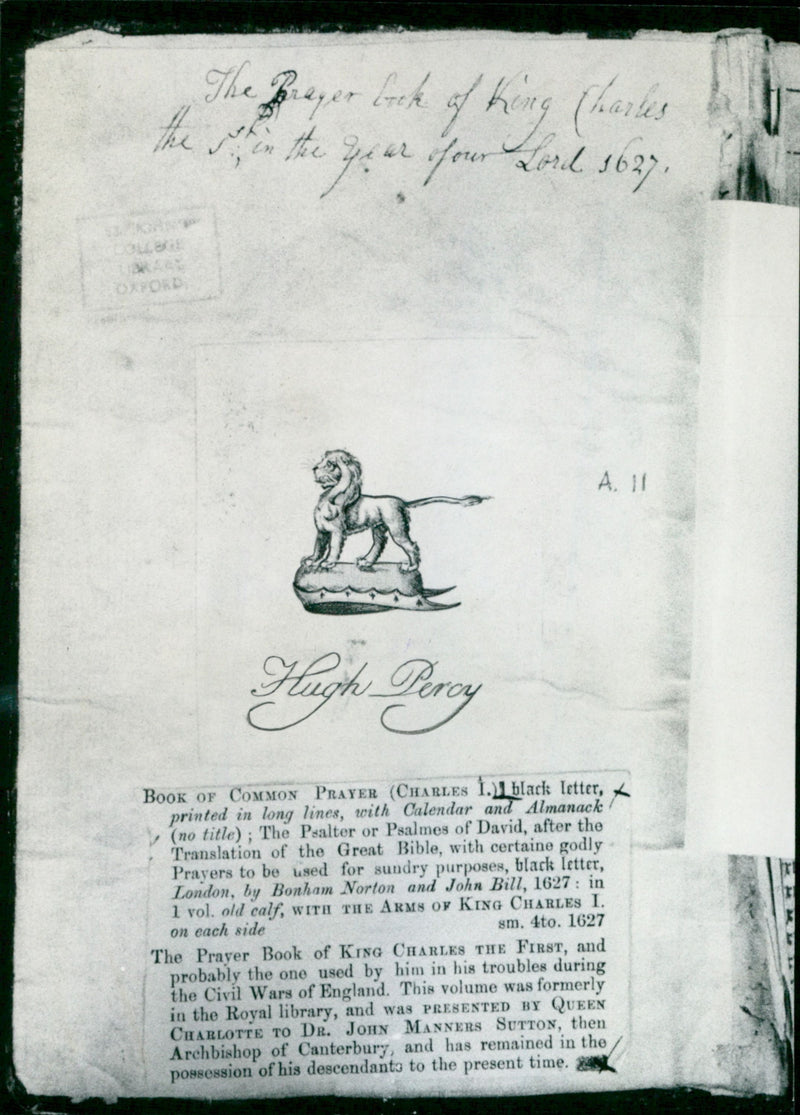 The Prayer book of King Charles
the 1st, in the Year of our Lord 1627.
ST. JOHN'S
COLLEGE
LIBRARY,
OXFORD.
A. 11
Hugh Percy
BOOK OF COMMON PRAYER (CHARLES I.) black letter,
printed in long lines, with Calendar and Almanack
(no title); The Psalter or Psalmes of David, after the
Translation of the Great Bible, with certaine godly
Prayers to be used for sundry purposes, black letter,
London, by Bonham Norton and John Bill, 1627: in
1 vol. old calf, WITH THE ARMS OF KING CHARLES I.
on each side sm. 4to. 1627
The Prayer Book of KING CHARLES THE FIRST, and
probably the one used by him in his troubles during
the Civil Wars of England. This volume was formerly
in the Royal library, and was PRESENTED BY QUEEN
CHARLOTTE TO DR. JOHN MANNERS SUTTON, then
Archbishop of Canterbury, and has remained in the
possession of his descendants to the present time.